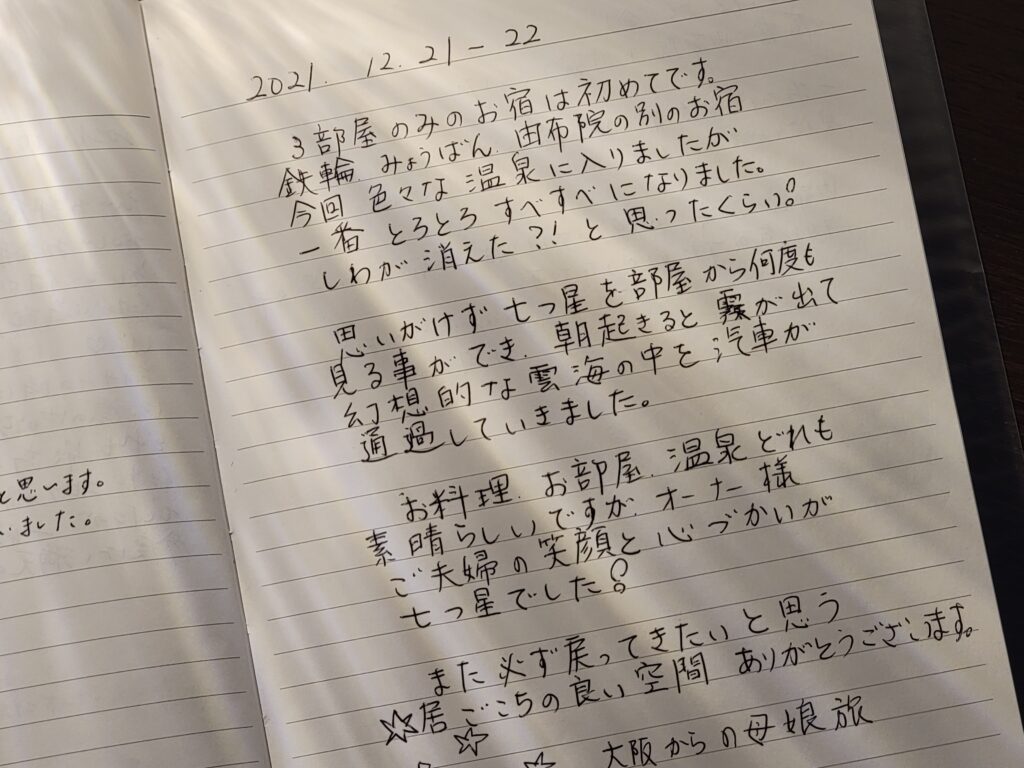 と思います。
いました。
2021. 12. 21 - 22
3部屋のみのお宿は初めてです。
鉄輪 みょうばん. 由布院の別のお宿
今回 色々な温泉に入りましたが
一番 とろとろ すべすべになりました。
しわが消えた?! と思ったくらい!
思いがけず七つ星を部屋から何度も
見る事ができ. 朝起きると霧が出て
幻想的な雲海の中を汽車が
通過していきました。
お料理. お部屋. 温泉どれも
素晴らしいですが. オーナー様
ご夫婦の笑顔と心づかいが
七つ星でした!
また必ず戻ってきたいと思う
☆居ごこちの良い空間 ありがとうございます。
☆
☆ 大阪からの母娘旅